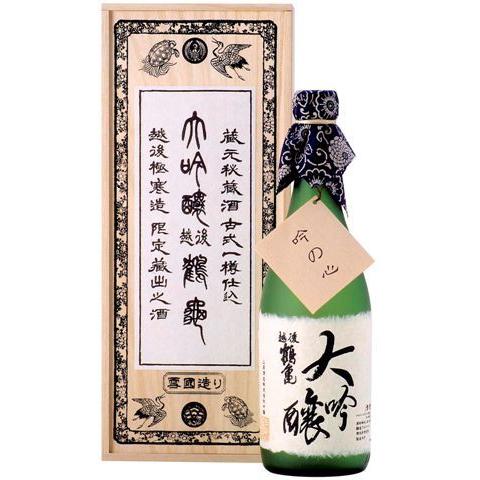 蔵元秘蔵酒 古式一樽仕込
大吟醸 越後鶴亀
越後極寒造 限定蔵出之酒
雪國造り
吟の心
大吟醸
越後
鶴亀